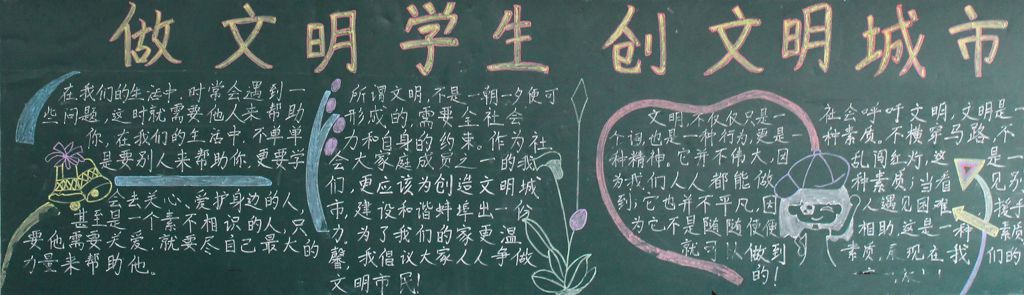 做文明学生 创文明城市
在我们的生活中，时常会遇到一
些问题，这时就需要他人来帮助
你，在我们的生活中，不单单
是要别人来帮助你，更要学
会去关心、爱护身边的人，
甚至是一个素不相识的人，只
要他需要关爱，就要尽自己最大的
力量来帮助他。
所谓文明，不是一朝一夕便可
形成的，需要全社会
力和自身的约束。作为社
会大家庭成员之一的我
们，更应该为创造文明城
市，建设和谐蚌埠出一份
力，为了我们的家更温
馨，我倡议大家人人争做
文明市民！
文明不仅仅只是一
个词，也是一种行为，更是一
种精神。它并不伟大，因
为我们人人都能做
到；它也并不平凡，因
为它不是随随便便
就可以做到
的！
社会呼吁文明，文明是一
种素质。不横穿马路，不
乱闯红灯，这是一
种素质；当看见别
人遇见困难，援手
相助这是一种素质
素质，展现在我们的